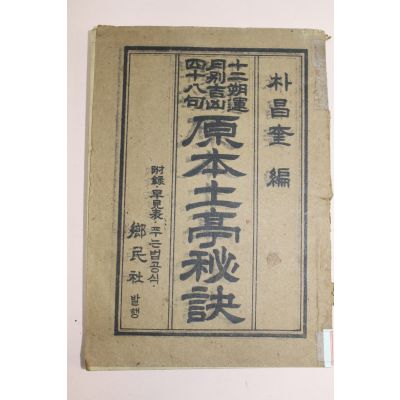 朴昌奎 編
十二朔運
月別吉凶
四十八句
原本土亭秘訣
附錄 早見表·푸는법공식
鄕民社 발행